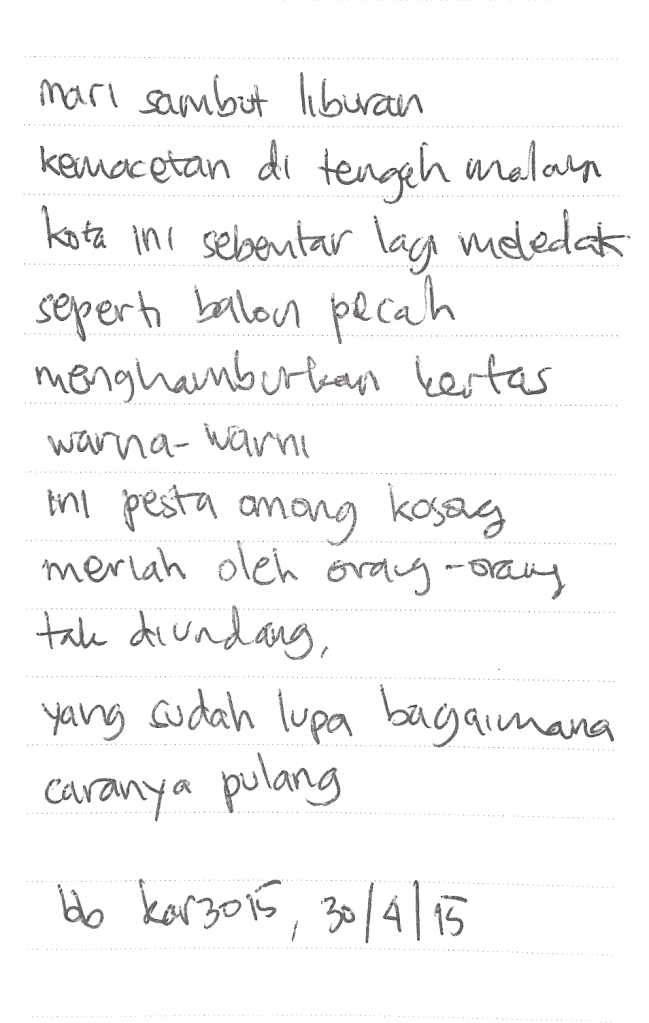 mari sambut liburan
kemacetan di tengah malam
kota ini sebentar lagi meledak
seperti balon pecah
menghamburkan kertas
warna-warni
ini pesta omong kosong
meriah oleh orang-orang
tak diundang,
yang sudah lupa bagaimana
caranya pulang
bb kar3015, 30/4/15